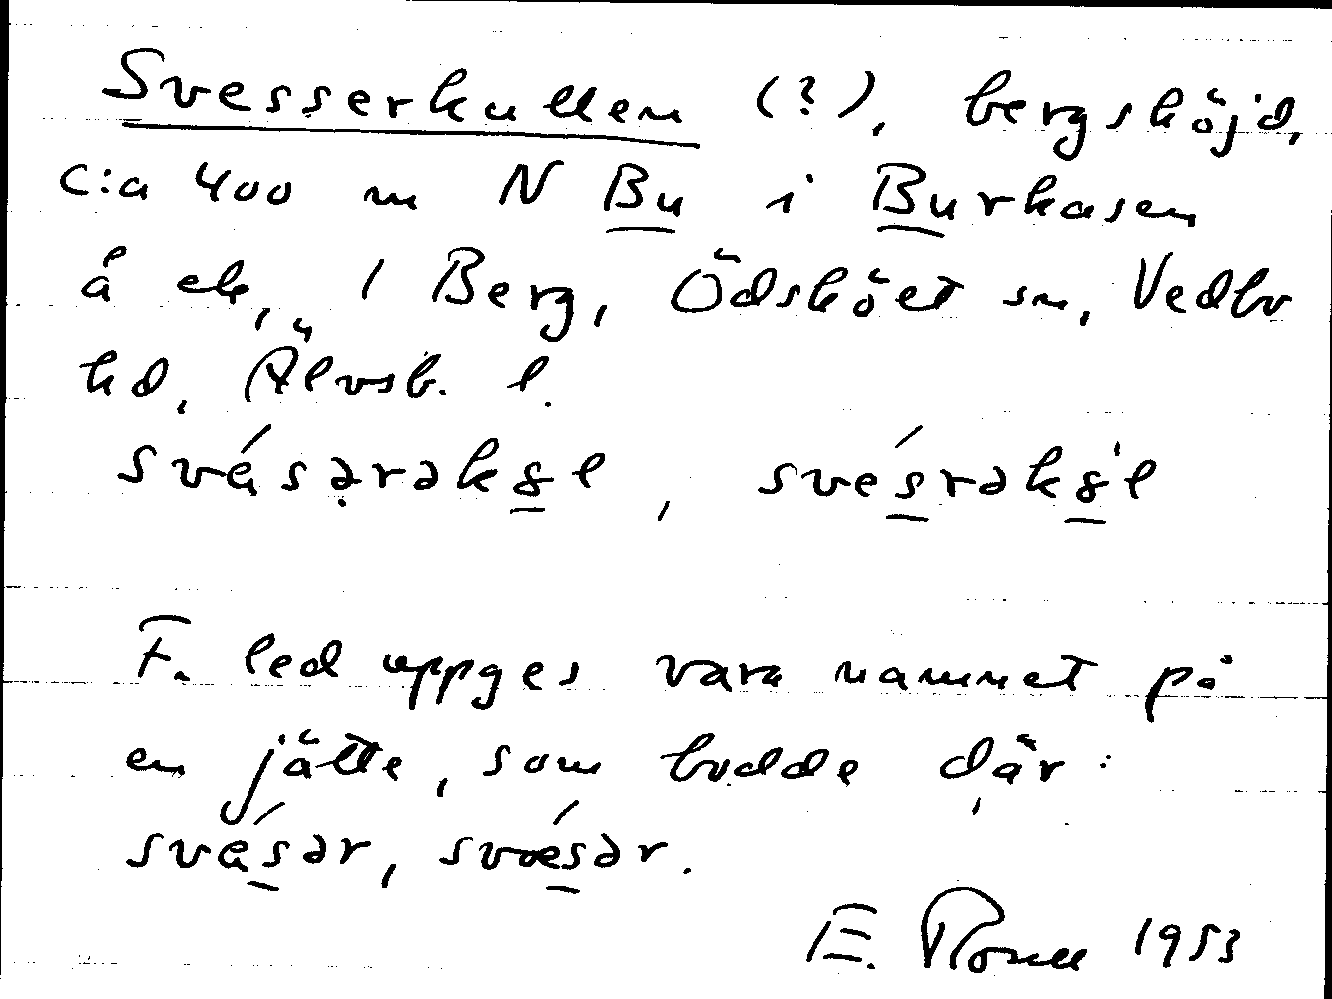 Svesserkullen (?), bergshöjd,
c:a 400 m N Bu i Burkasen
å ek, 1 Berg, Ödsköet sn, Vedbo
hd, Älvsb. l.
svésərək
F. led uppges vara namnet på
en jätte, som bodde där:
svésər, svǽsər.
E. 1953